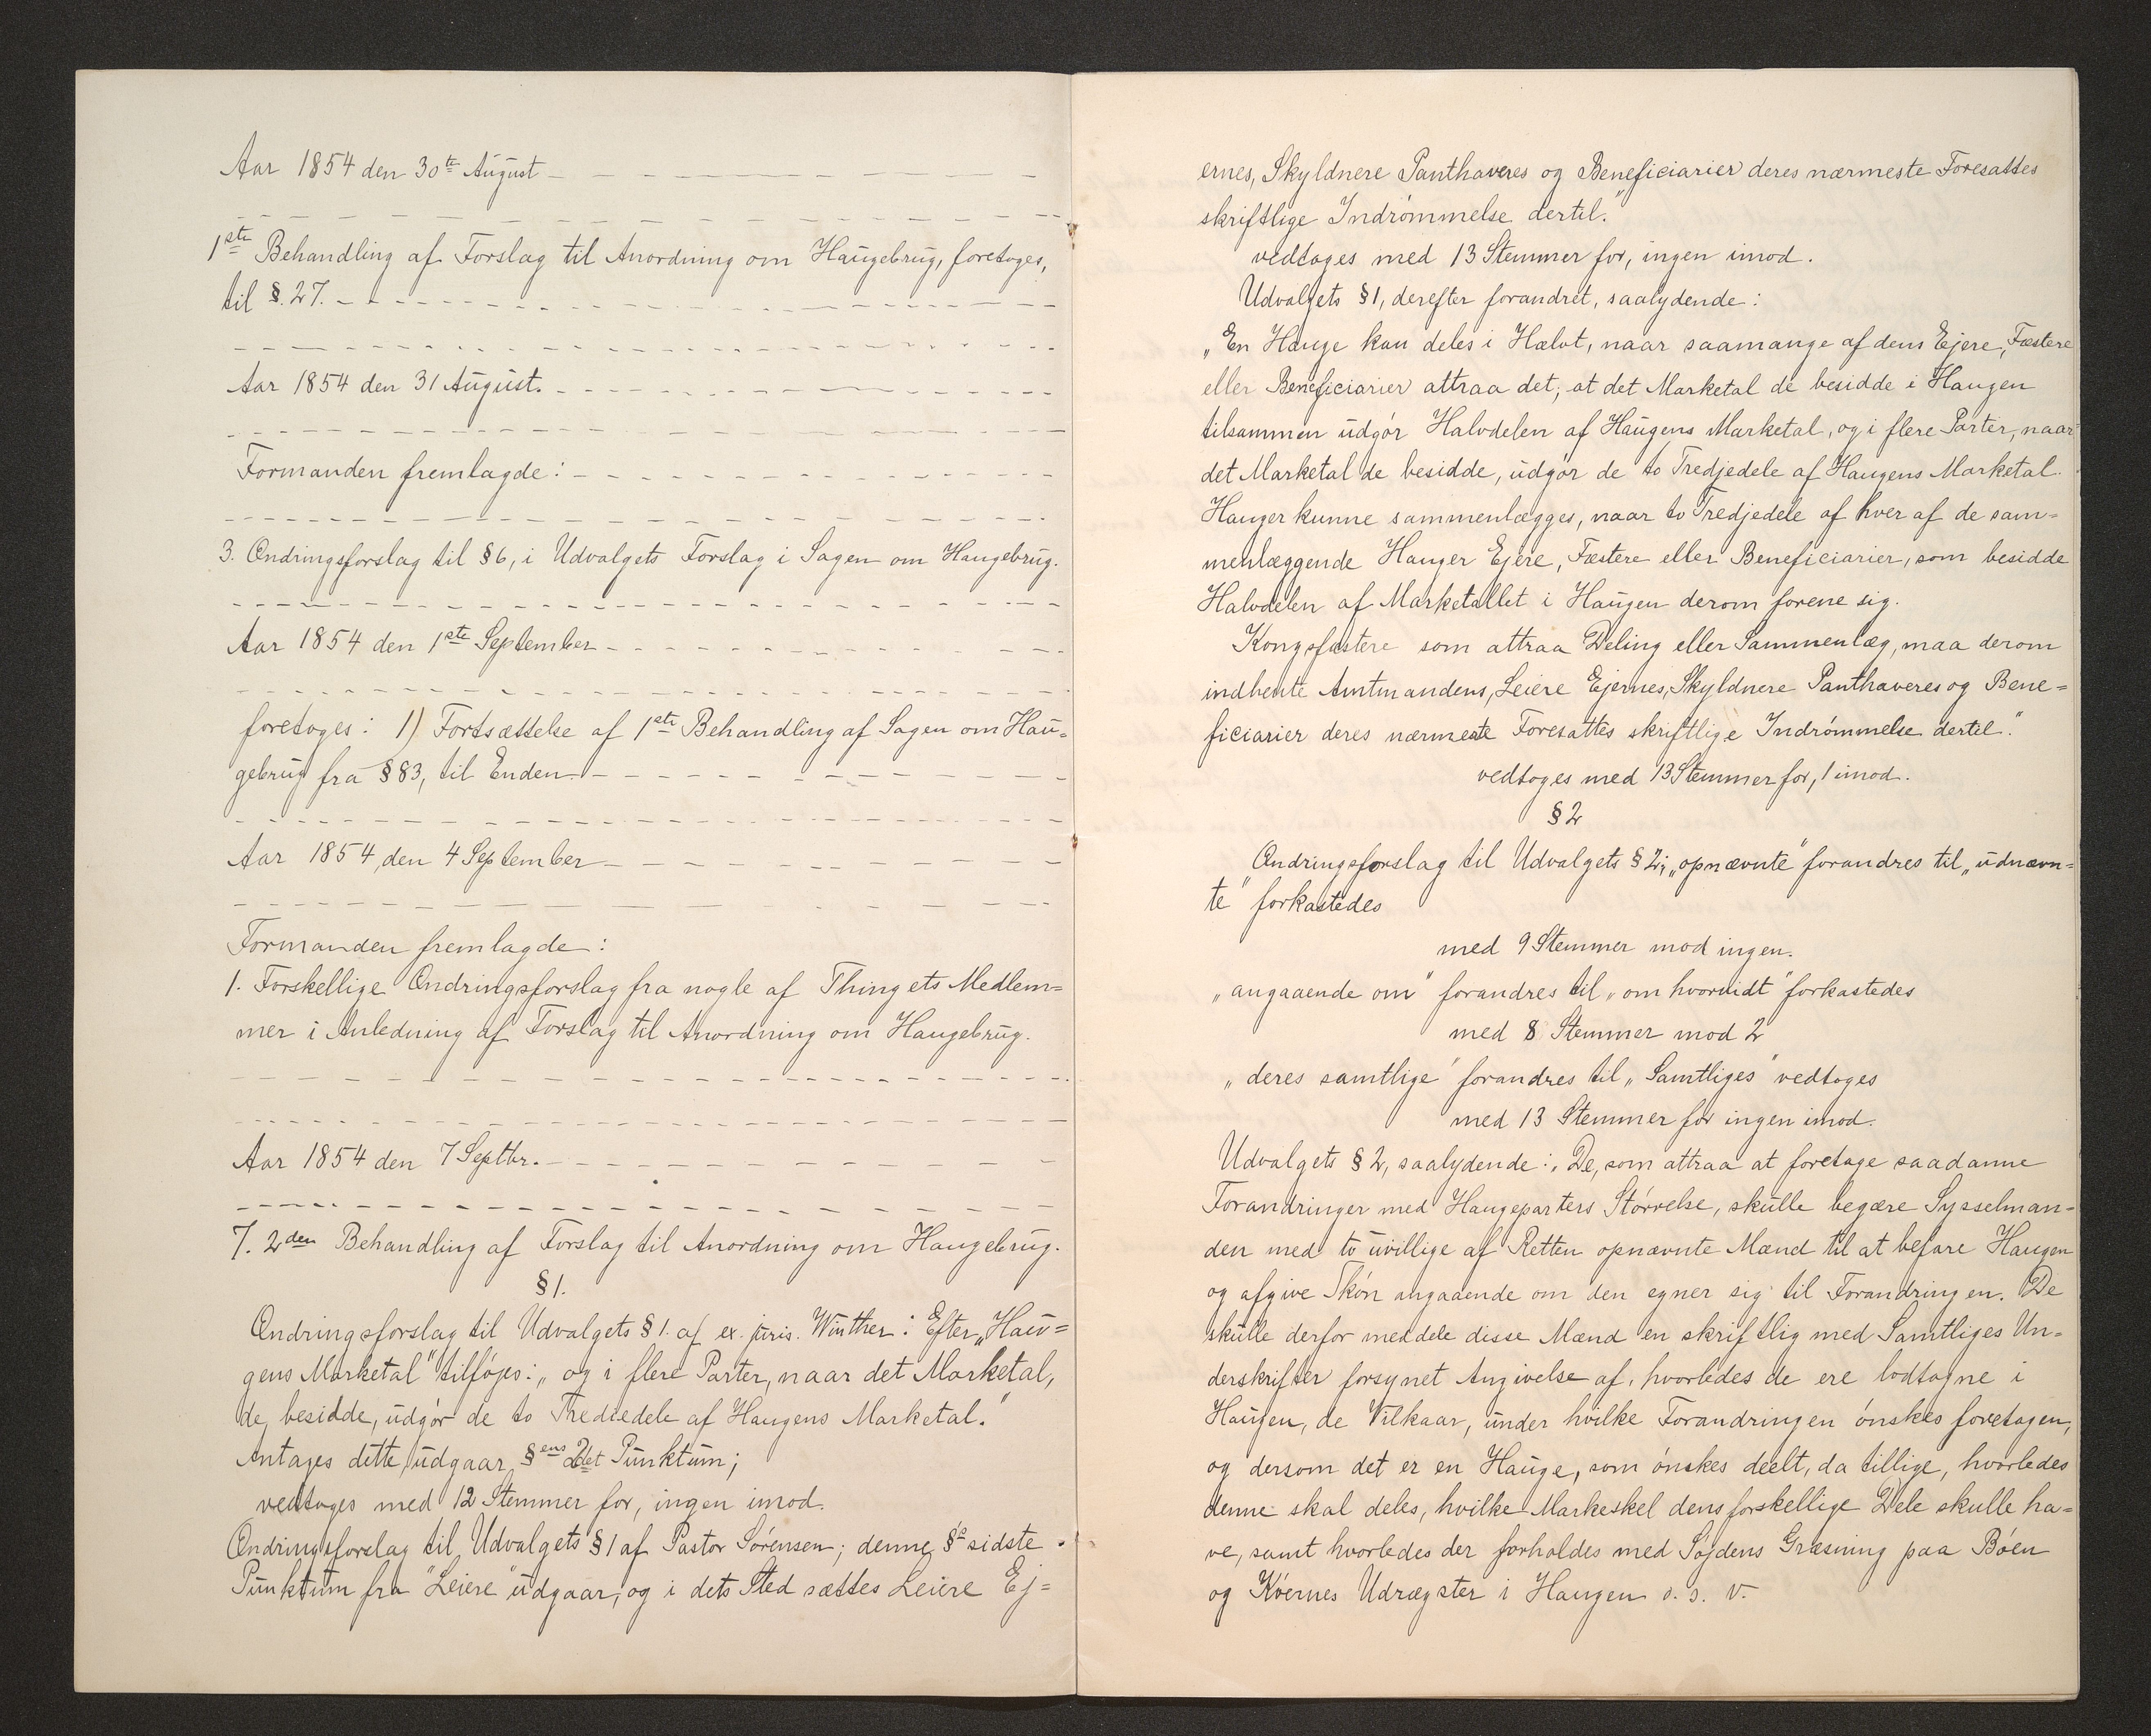 Aar 1854 den 30te August – – – – – – – –
– – – – – – – – – – – – – – –
1ste Behandling af Forslag til Anordning om Haugebrug, foretoges,
til §. 27. – – – – – – – – – – – –
– – – – – – – – – – – – – – –
Aar 1854 den 31 August. – – – – – – – –
– – – – – – – – – – – – – – –
Formanden fremlagde: – – – – – – – –
– – – – – – – – – – – – – – –
3. Ændringsforslag til § 6, i Udvalgets Forslag i Sagen om Haugebrug.
– – – – – – – – – – – – – – –
Aar 1854 den 1ste September – – – – – – – –
– – – – – – – – – – – – – – –
foretoges: 1) Fortsættelse af 1ste Behandling af Sagen om Hau=
gebrug fra § 83, til Enden. – – – – – – – –
– – – – – – – – – – – – – – –
Aar 1854, den 4 September – – – – – – – –
– – – – – – – – – – – – – – –
Formanden fremlagde:
1. Forskellige Ændringsforslag fra nogle af Thingets Medlem=
mer i Anledning af Forslag til Anordning om Haugebrug.
– – – – – – – – – – – – – – –
– – – – – – – – – – – – – – –
Aar 1854 den 7 Septbr. – – – – – – – –
– – – – – – – – – – – – – – –
7. 2den Behandling af Forslag til Anordning om Haugebrug.
§ 1.
Ændringsforslag til Udvalgets § 1. af ex. juris. Winther: Efter „Hau=
gens Marketal" tilføjes: „og i flere Parter, naar det Marketal,
de, besidde, udgør de to Trediedele af Haugens Marketal."
Antages dette, udgaar §ens 2det Punktum;
vedtoges med 12 Stemmer for, ingen imod.
Ændringsforslag til Udvalgets § 1 af Pastor Sørensen; denne §'s sidste
Punktum fra "Leiere" udgaar, og i dets Sted sættes Leiere Ej=
ernes, Skyldnere Panthaveres og Beneficiarier deres nærmeste Foresattes
skriftlige Indrømmelse dertil."
vedtoges med 13 Stemmer for, ingen imod.
Udvalgets § 1, derefter forandret, saalydende:
„En Hauge kan deles i Halvt, naar saamange af dens Ejere, Fæstere
eller Beneficiarier attraa det; at det Marketal de besidde i Haugen
tilsammen udgør Halvdelen af Haugens Marketal, og i flere Parter, naar
det Marketal de besidde, udgør de to Tredjedele af Haugens Marketal.
Hauger kunne sammenlægges, naar to Tredjedele af hver af de sam=
menlæggende Hauger Ejere, Fæstere eller Beneficiarier, som besidde
Halvdelen af Marketallet i Haugen derom forene sig.
Kongsfæstere som attraa Deling eller Sammenlæg, maa derom
indhente Amtmandens, Leiere Ejernes, Skyldnere Panthaveres og Bene=
ficiarier deres nærmeste Foresattes skriftlige Indrømmelse dertil."
vedtoges med 13 Stemmer for, 1 imod.
§ 2
Ændringsforslag til Udvalgets § 2; „opnævnte" forandres til „udnævn=
te" forkastedes
med 9 Stemmer mod ingen.
„angaaende om" forandres til „om hvorvidt" forkastedes
med 8 Stemmer mod 2
„deres samtlige" forandres til „Samtliges" vedtoges
med 13 Stemmer for ingen imod.
Udvalgets § 2, saalydende: „De, som attraa at foretage saadanne
Forandringer med Haugeparters Størrelse, skulle begære Sysselman=
den med to uvillige af Retten opnævnte Mænd til at befare Haugen
og afgive Skøn angaaende om den egner sig til Forandringen. De
skulle derfor meddele disse Mænd en skriftlig med Samtliges Un=
derskrifter forsynet Angivelse af, hvorledes de ere lodtagne i
Haugen, de Vilkaar, under hvilke Forandringen ønskes foretagen,
og dersom det er en Hauge, som ønskes deelt, da tillige, hvorledes
denne skal deles, hvilke Markeskel dens forskellige Dele skulle ha=
ve, samt hvorledes der forholdes med Søjdens Græsning paa Bøen
og Køernes Udrægster i Haugen o. s. v.